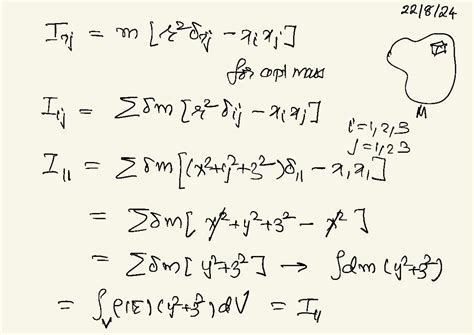 22/8/24
I_ij = m [r² δ_ij − x_i x_j]
for cont mass
M
I_ij = ∑ δm [r² δ_ij − x_i x_j]
i = 1, 2, 3
j = 1, 2 3
I_11 = ∑ δm [(x² + y² + z²) δ_11 − x_1 x_1]
= ∑ δm [x² + y² + z² − x²]
= ∑ δm [y² + z²] → ∫ dm (y² + z²)
= ∫_V ρ(r) (y² + z²) dV = I_11